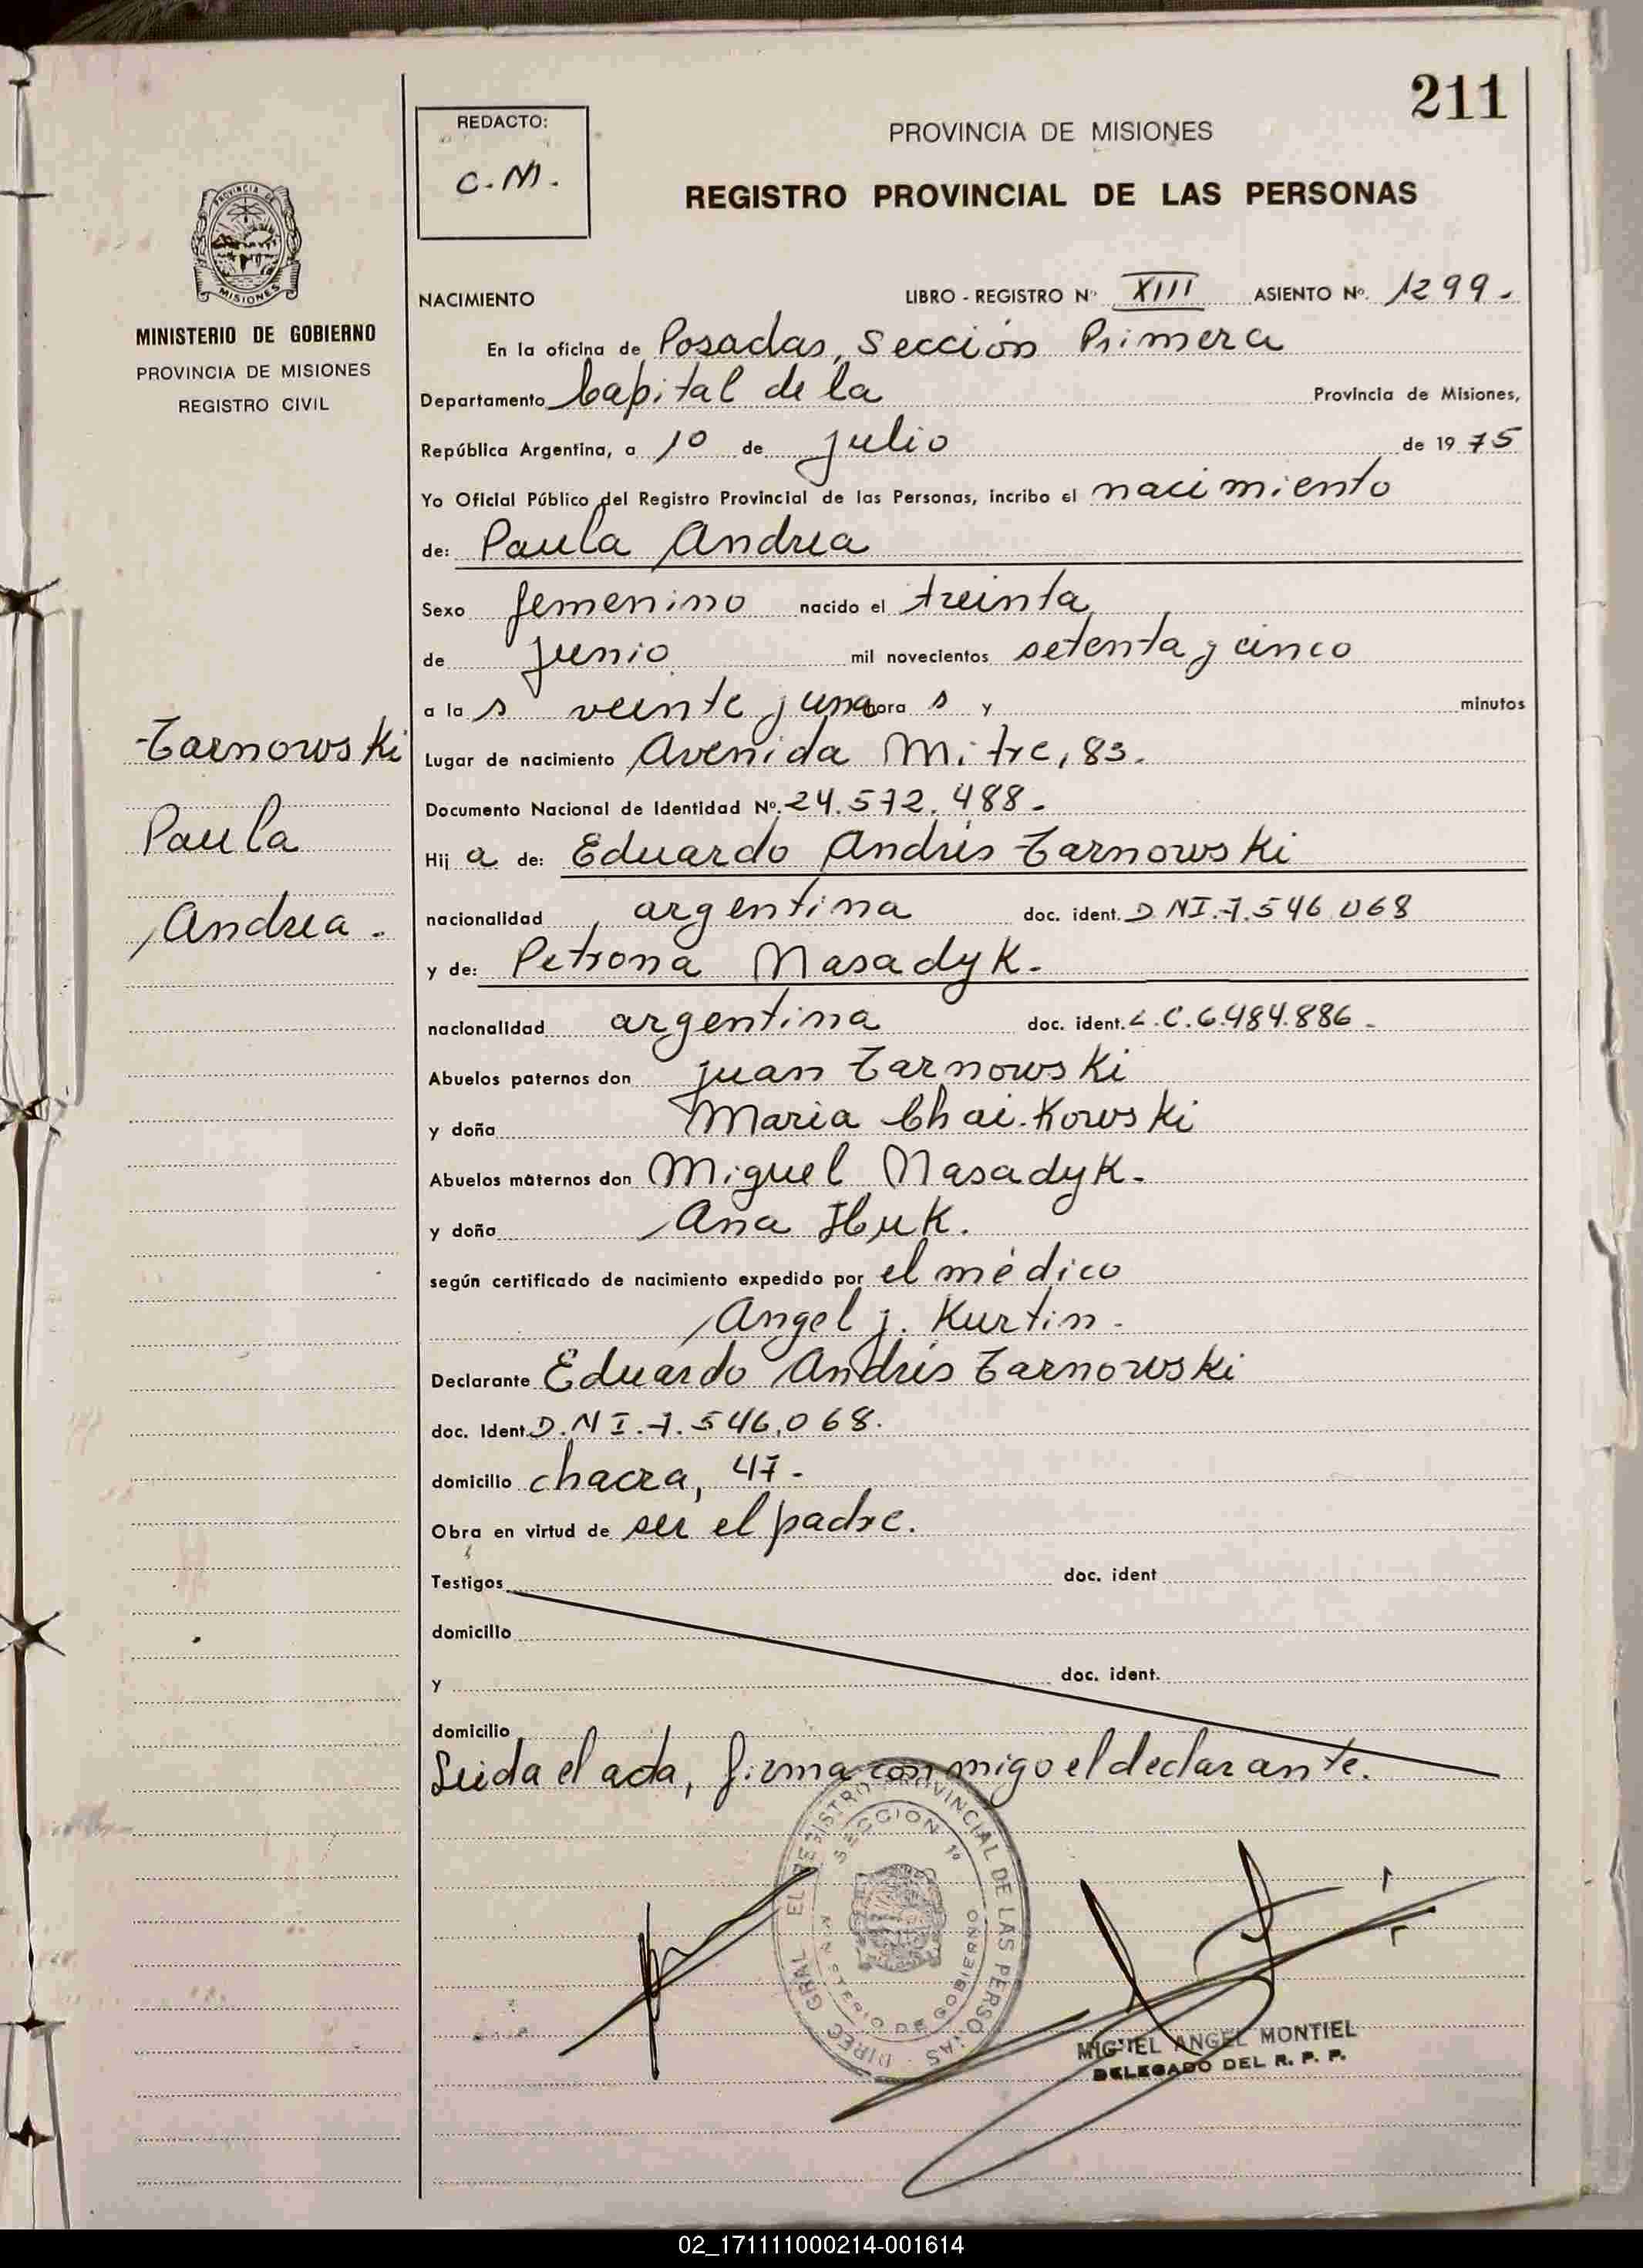 211
REDACTO:
C.M.
PROVINCIA DE MISIONES
REGISTRO PROVINCIAL DE LAS PERSONAS
PROVINCIA DE
MISIONES
MINISTERIO DE GOBIERNO
PROVINCIA DE MISIONES
REGISTRO CIVIL
NACIMIENTO LIBRO - REGISTRO Nº XIII ASIENTO Nº. 1299.
En la oficina de Posadas, Sección Primera
Departamento Capital de la Provincia de Misiones,
República Argentina, a 10 de julio de 1975
Yo Oficial Público del Registro Provincial de las Personas, incribo el nacimiento
de: Paula Andrea
Sexo femenino nacido el treinta
de junio mil novecientos setenta y cinco
a la s veinte y una hora s y minutos
Tarnowski
Paula
Andrea.
Lugar de nacimiento Avenida Mitre, 83.
Documento Nacional de Identidad Nº. 24.572.488.
Hij a de: Eduardo Andrés Tarnowski
nacionalidad argentina doc. ident. DNI.7.546.068
y de: Petrona Nasadyk.
nacionalidad argentina doc. ident. L.C.6.484.886.
Abuelos paternos don Juan Tarnowski
y doña Maria Chaikowski
Abuelos maternos don Miguel Nasadyk.
y doña Ana Huk.
según certificado de nacimiento expedido por el médico
Angel J. Kurtin.
Declarante Eduardo Andrés Tarnowski
doc. Ident. D.N I.7.546.068.
domicilio chacra, 47.
Obra en virtud de ser el padre.
Testigos doc. ident
domicilio
y doc. ident.
domicilio
Leida el acta, firma conmigo el declarante.
DIREC. GRAL. EL REGISTRO PROVINCIAL DE LAS PERSONAS
SECCION 1ª
MINISTERIO DE GOBIERNO
MIGUEL ANGEL MONTIEL
DELEGADO DEL R. P. P.
02_171111000214-001614